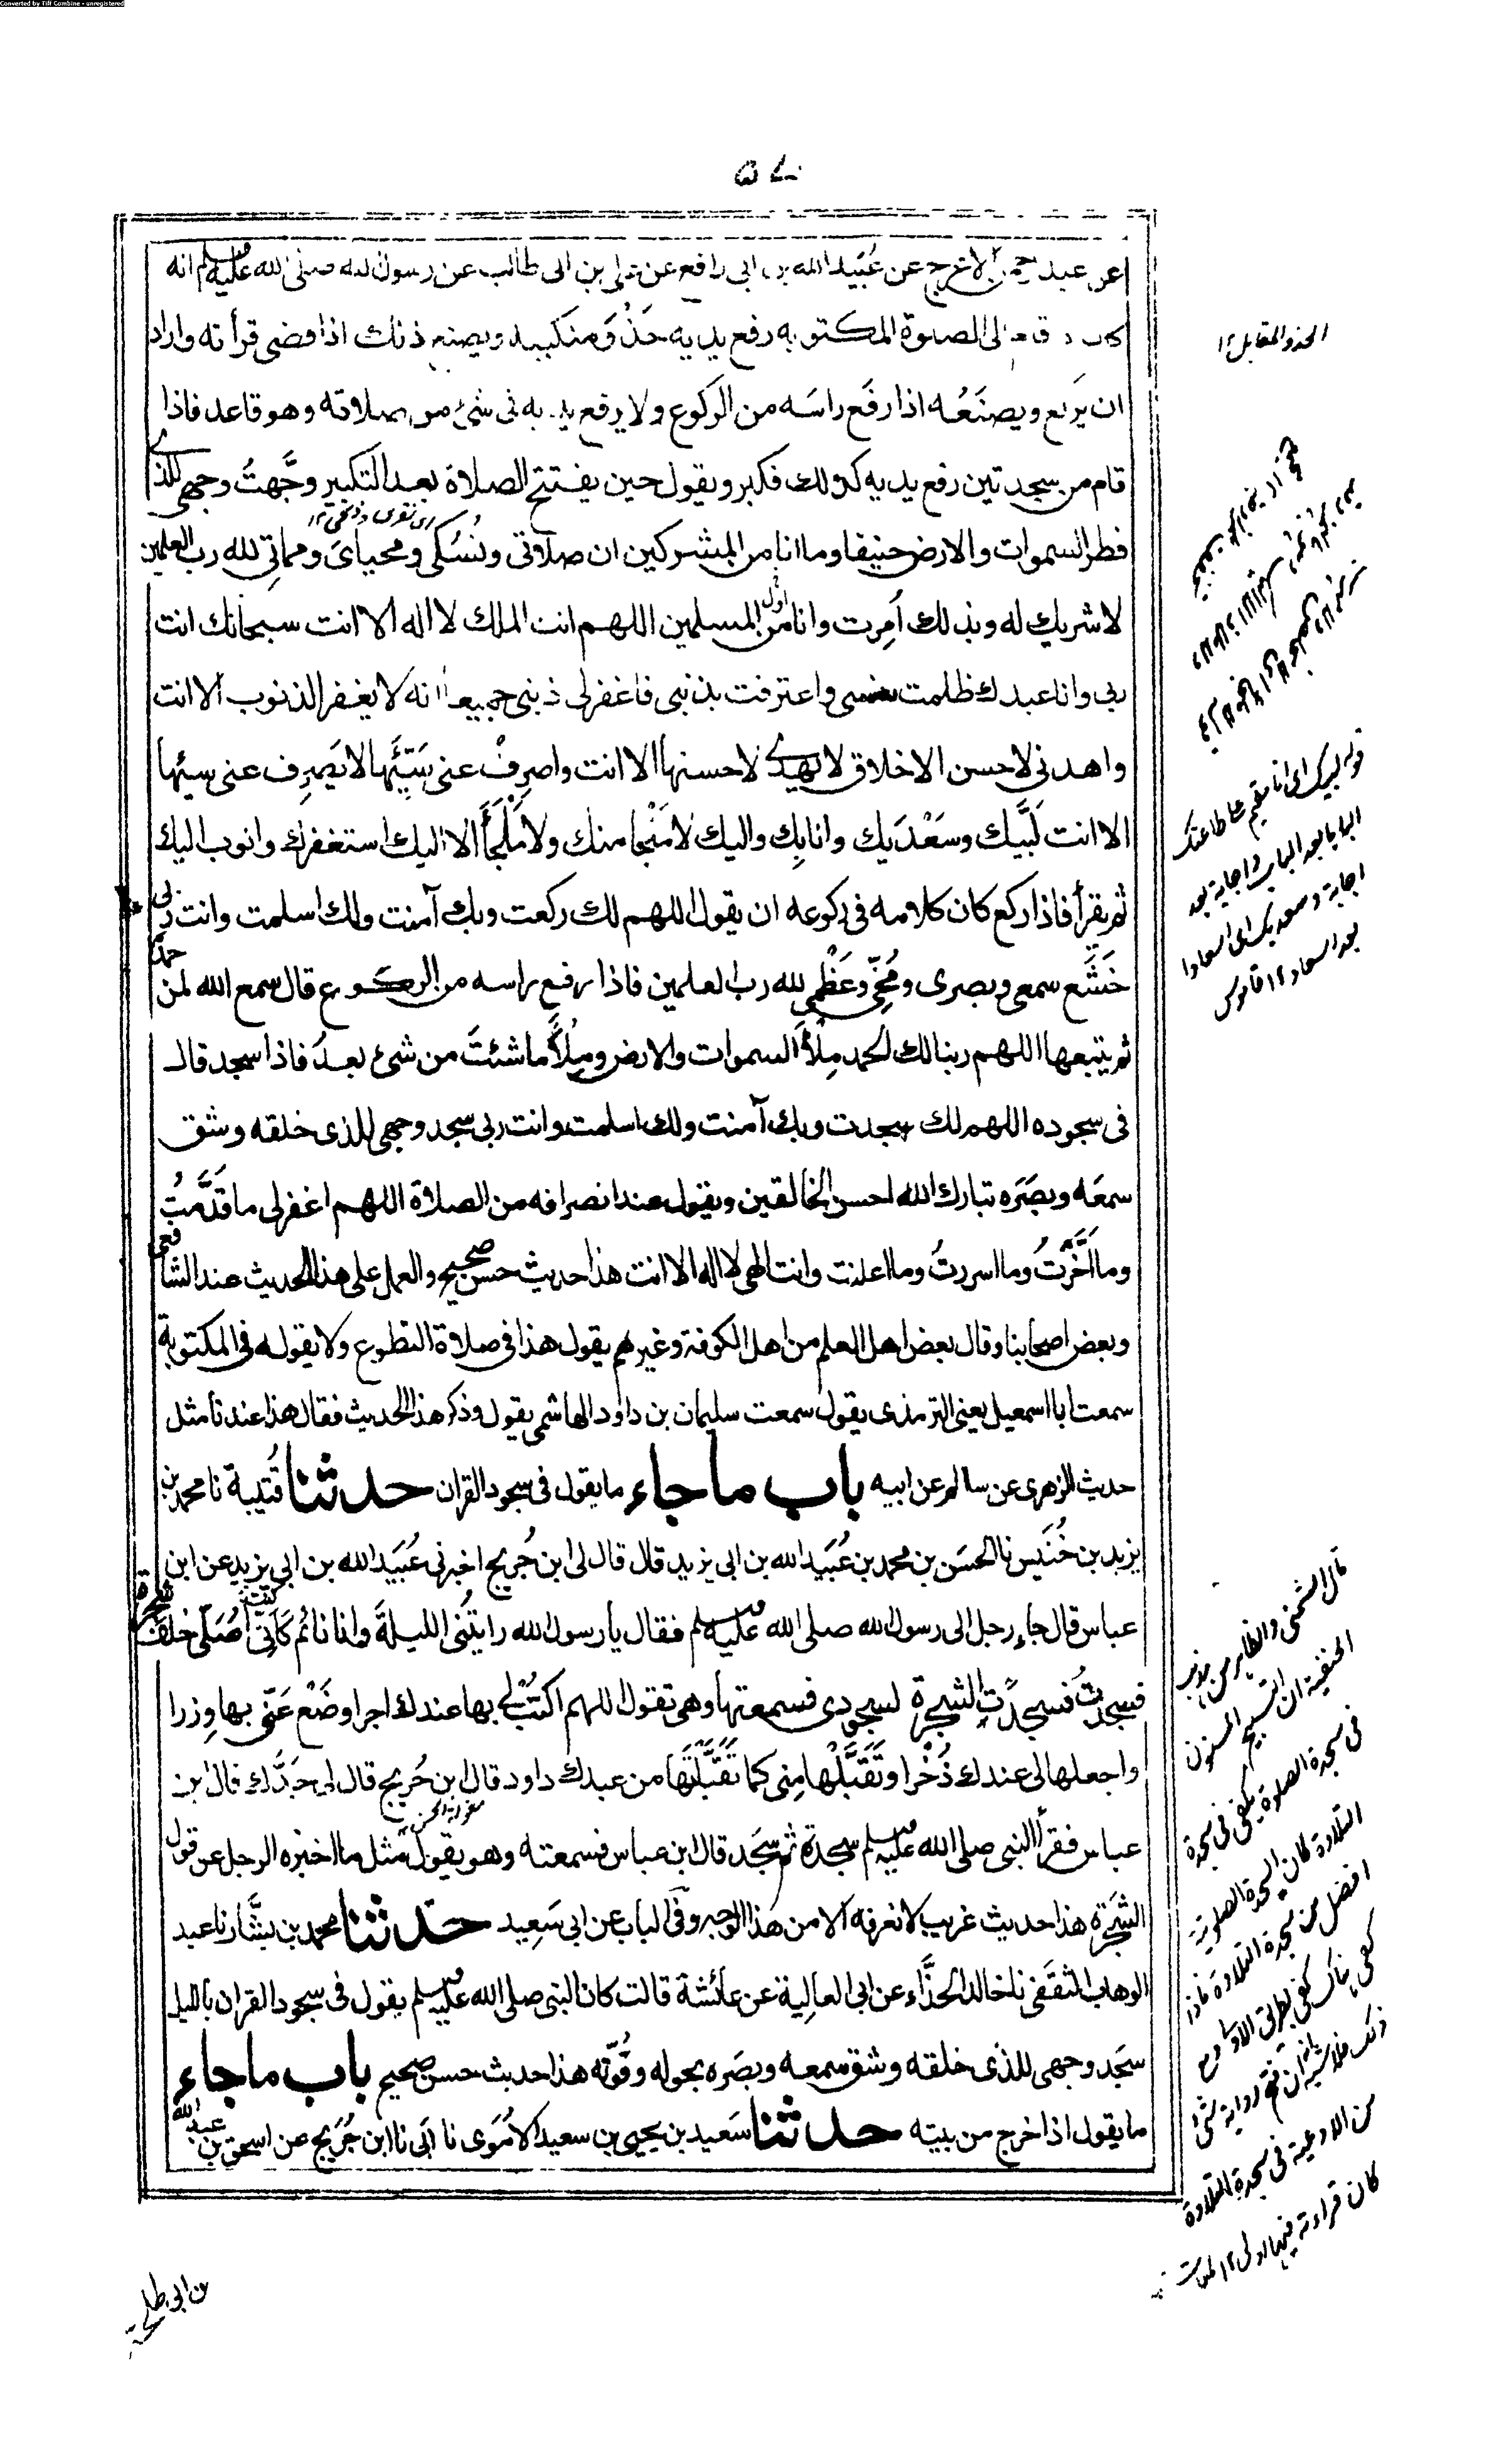 Converted by Tiff Combine - unregistered
عن عبد الرحمن الاعرج عن عُبَيد الله بن ابى رافع عن على بن ابى طالب عن رسول الله صلى الله عليه وسلم انه
الى الصلوة المكتوبه رفع يديه حَذْوَ منكبيه ويصنع ذلك اذا قضى قرأته واراد
ان يركع ويصنَعُه اذا رفَع راسَه من الركوع ولا يرفع يديه فى شئ من صلاته وهو قاعد فاذا
قام من سجدتين رفع يديه كذلك فكبر ويقول حين يفتتح الصلاة بعد التكبير وجَّهتُ وجهى للذى
فطر السموات والارض حنيفا وما انا من المشركين ان صلاوتى ونُسُكى ومحياىَ ومماتى لله رب العلمين
لا شريك له وبذلك اُمِرت وانا من المسلمين اللهم انت الملك لا اله الا انت سبحانك انت
ربى وانا عبدك ظلمت نفسى واعترفت بذنبى فاغفرلى ذنبى جميعا انه لا يغفر الذنوب الا انت
واهدنى لاحسن الاخلاق لا يهدى لاحسنها الا انت واصرِفْ عنى سَيِّئَها لا يَصرِف عنى سيئها
الا انت لَبَّيك وسَعْدَيك وانا بِك واليك لا مَنْجا منك ولا مَلْجَأَ الا اليك استغفرك واتوب اليك
ثم يقرأ فاذا ركع كان كلامه فى ركوعه ان يقول اللهم لك ركعت وبك آمنت ولك اسلمت وانت ربى
خَشَع سمعى وبصرى ومُخّى وعَظْمى لله رب العلمين فاذا رفع راسه من الركوع قال سمع الله لمن حمده
ثم يتبعها اللهم ربنا لك الحمد مِلْأَ السموات والارض ومِلْأَ ما شئتَ من شئ بعدُ فاذا سجد قال
فى سجوده اللهم لك سجدت وبك آمنت ولك اسلمت وانت ربى سجد وجهى للذى خلقه وشق
سمعَه وبصَرَه تبارك الله احسن الخالقين ويقول عند انصرافه من الصلاة اللهم اغفرلى ما قدَّمتُ
وما اَخَّرتُ وما اسررتُ وما اعلنت وانت الٰهى لا اله الا انت هذا حديث حسن صحيح والعمل على هذا الحديث عند الشافعى
وبعض اصحابنا وقال بعض اهل العلم من اهل الكوفة وغيرهم يقول هذا فى صلاة التطوع ولا يقوله فى المكتوبة
سمعت ابا اسمعيل يعنى الترمذى يقول سمعت سليمان بن داود الهاشمى يقول وذكر هذا الحديث فقال هذا عندنا مثل
حديث الزهرى عن سالم عن ابيه باب ما جاء ما يقول فى سجود القران حدثنا قُتَيبة نا محمد بن
يزيد بن خُنَيس نا الحسَن بن محمد بن عُبَيد الله بن ابى يزيد قال قال لى ابن جُريج اخبرنى عُبَيد الله بن ابى يزيد عن ابن
عباس قال جاء رجل الى رسول الله صلى الله عليه وسلم فقال يا رسول الله رايتُنى الليلةَ وانا نائم كَأَنّى اُصَلّى خلف شجرة
فسجدتُ فسجدَت الشجرة لسجودى فسمعتها وهى تقول اللهم اكتُبْ لى بها عندك اجرا وضَعْ عَنّى بها وِزرا
واجعلها لى عندك ذُخْرا وتَقَبَّلْها مِنى كما تَقَبَّلتَها من عبدك داود قال ابن جُريج قال لى جَدُّك قال ابن
عباس فقرأ النبى صلى الله عليه وسلم سجدة ثم سجَد قال ابن عباس فسمعته وهو يقول مثل ما اخبره الرجل عن قول
الشجرة هذا حديث غريب لا نعرفه الا من هذا الوجه وفى الباب عن ابى سَعِيد حدثنا محمد بن بشَّار نا عبد
الوهاب الثقَفى نا خالد الحذَّاء عن ابى العالية عن عائشة قالت كان النبى صلى الله عليه وسلم يقول فى سجود القران بالليل
سجَد وجهى للذى خلقه وشق سمعه وبصَره بحوله وقُوَّته هذا حديث حسن صحيح باب ما جاء
ما يقول اذا خرج من بيته حدثنا سَعيد بن يحيى بن سعيد الاُمَوى نا ابى نا ابن جُرَيج عن اسحق بن عبد الله
بن ابى طلحة
الحذو المقابل ١٢
قوله لبيك اى انا مقيم على طاعتك
البابا بعد الباب واجابة بعد
اجابة وسعديك اى اسعادا
بعد اسعاد ١٢ قاموس
قال الشمنى والظاهر من مذهب
الحنفية ان التسبيح المسنون
فى سجدة الصلوة يكفى فى سجدة
التلاوة كان السجدة الصلوتية
افضل من سجدة التلاوة فاذا
كفى هناك كفى بطريق الاولى ومع
ذلك فلا شبهة انه ان صح رواية شئ
من الادعية فى سجدة التلاوة
كان قراءته فيها اولى ١٢ لمعات